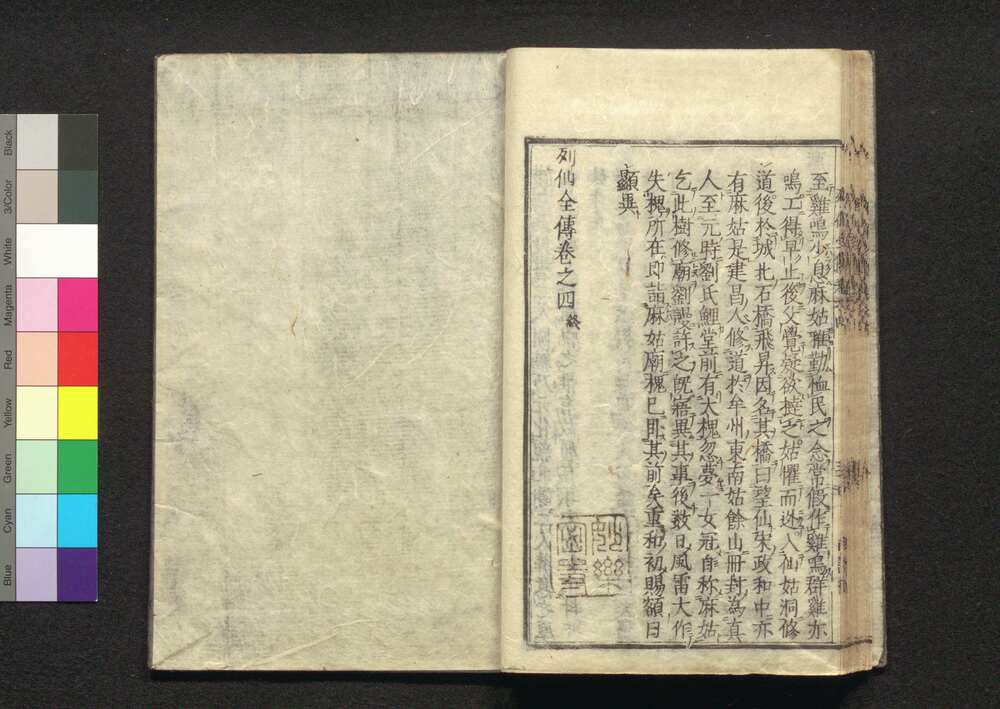 至雞鳴少息麻姑雅勤恤民之念常假作雞鳴群雞亦
鳴工得早止後父覺疑欲撻之姑懼而逃入仙姑洞修
道後於城北石橋飛昇因名其橋曰望仙宋政和中亦
有麻姑是建昌人修道於牟州東南姑餘山冊封為真
人至元時劉氏鯉堂前有大槐忽夢一女冠自称麻姑
乞此樹修廟劉謾許之既寤異其事後数日風雷大作
失槐所在即詣麻姑廟槐已卧其前矣重和初賜額曰
顯異
列仙全傳卷之四終
Black
3/Color
White
Magenta
Red
Yellow
Green
Cyan
Blue